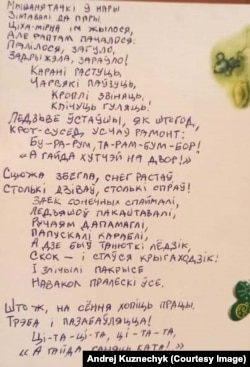 Мышаняткі ў нары
Зімавалі да пары.
Ціха-мірна ім жылося.
Але раптам пачалося:
Палілося, загуло,
Задрыжэла, зараўло!
Карані растуць,
Чарвякі паўзуць,
Кроплі звіняць,
Клічуць гуляць!
Ледзьве ўстаўшы, як штогод,
Крот-сусед усчаў рамонт:
Бу-ра-рум, та-рам-бум-бор!
«А гайда хутчэй на двор!»
Сцюжа збегла, снег растаў
Столькі дзіваў, столькі спраў!
Заек сонечных спаймалі,
Ледзьяшоў пакаштавалі,
Ручаям дапамаглі,
Папускалі караблі,
А дзе быў танюткі лёдзік,
Скок – і стаўся крыгаходзік:
І злічылі пакрысе
Навакол пралескі ўсе.
Што-ж, на сёння хопіць працы.
Трэба і пазабаўляцца!
Ці-та-ці-та, ці-та-та,
«А гайда ганяць ката!»
Andrej Kuznechyk (Courtesy Image)